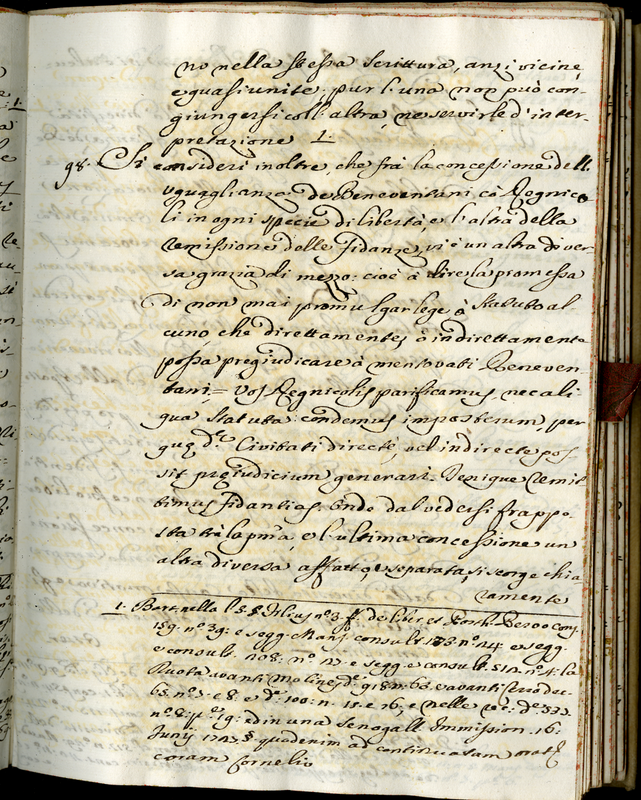 no nella stessa scrittura, anzi vicine,
e quasi unite: pur l'una non può con-
giungersi coll'altra, ne servirle d'inter-
pretazione 1.
98. Si consideri inoltre, che frà la concessione dell'
uguaglianza de Beneventani cà Regnico
li in ogni specie di libertà, e l'altra della
remissione delle Fidanze, vi è un altra diver
sa grazia di mezo: cioè à dire la promessa
di non mai promulgar lege, ò Statuto al-
cuno che direttamente, ò indirettamente
possa pregiudicare à mentovati Beneven-
tani = Vos Regnicolis parificamus, nec ali
qua statuta condemus imposterum, per
quę d.ę Civitati directè, vel indirecte pos-
sit pręjudicium generari. Denique remit
timus fidantias. Onde dal vedersi frappo-
sta trà la prima, e l'ultima concessione un
altra diversa affatto, e separata, si scorge chia
ramente
1. Bart. nella l. §. Filius n.º 3. ff. de liber. et Posth. Beroo cons.
159. n.º 39. e segg. Mans. consult. 173 n.º 14. e segg.
e consult. 408. n.º 17. e segg. e consult. 512. n.º 4. la
Ruota avanti Molines d.e 918. n. 63. e avanti
65. n.º 7. e 8. e d.e 100. n. 15. e 16., e nelle rec. d.e 533.
n.º 2. p.e 19. ed in una Senogall. Immission. 16.
Junij 1747. §. quodenim ad continuatam
coram Cornelio